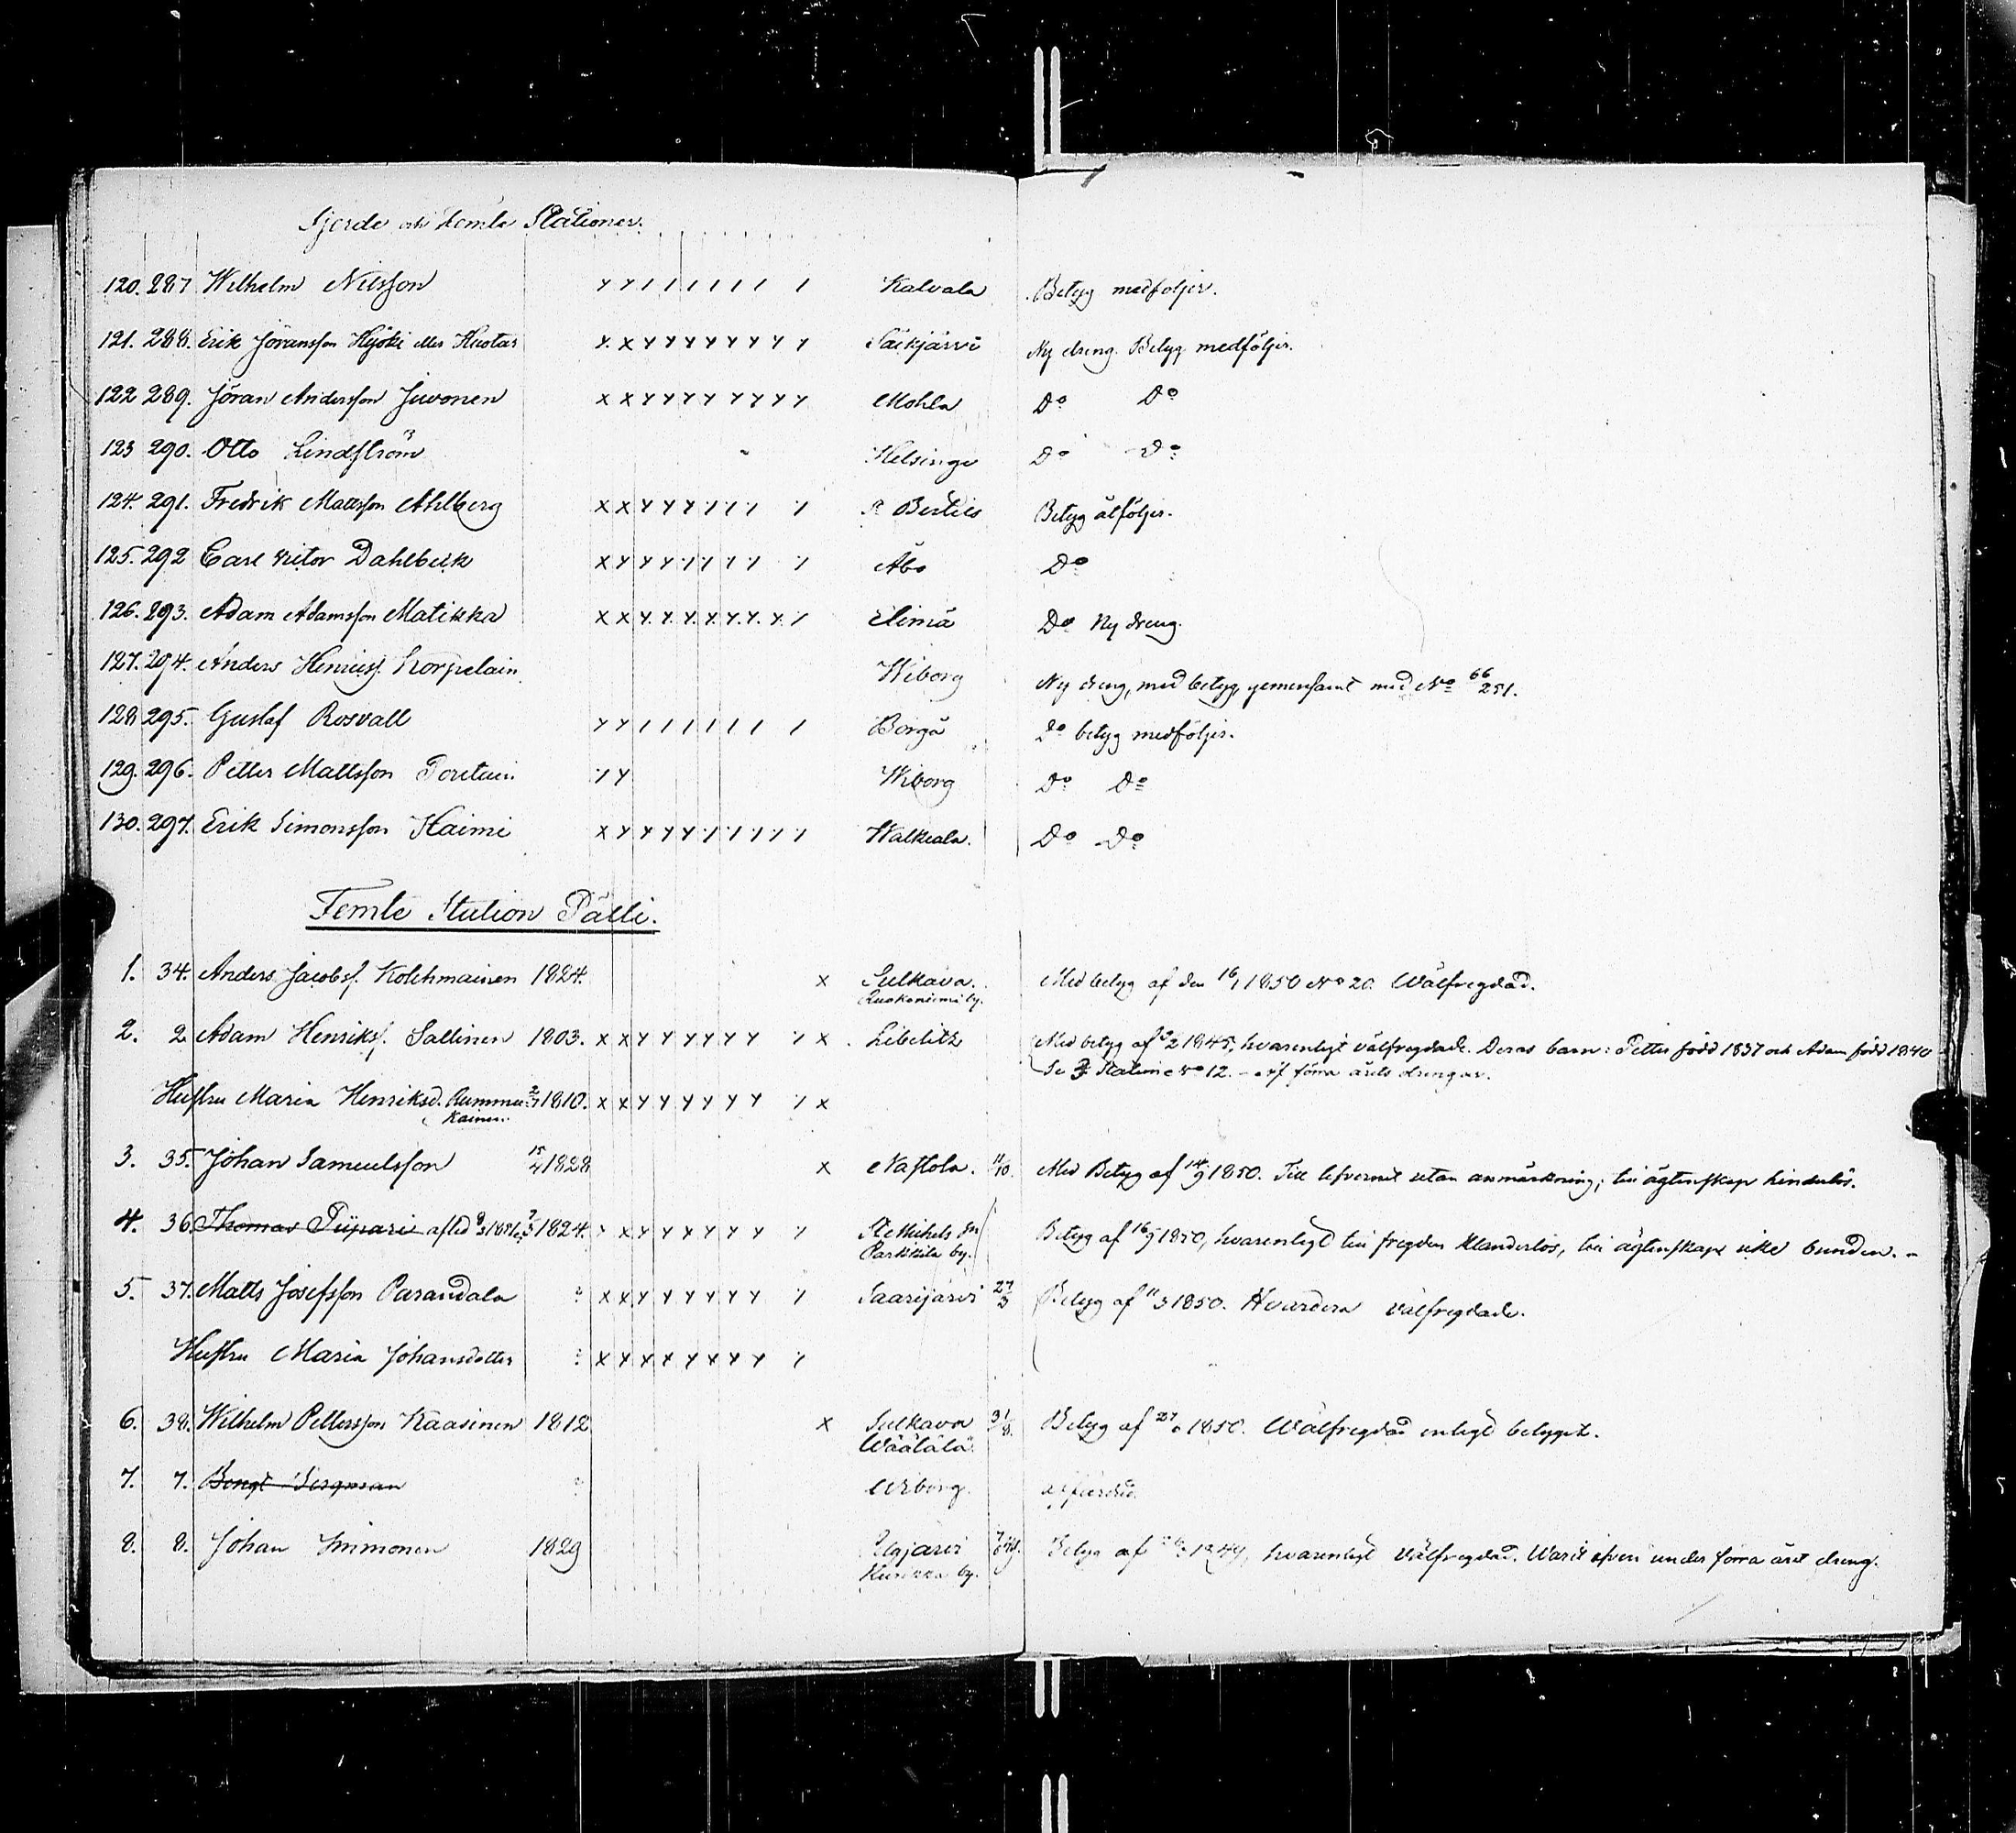 Fjerde och Femte Stationer.
120. 287 Wilhelm Nilsson Kalvala Betyg medföljer.
121. 288. Erik Jöransson Hyöki eller Huotar Säkjärvi Ny dreng. Betyg medföljer.
122 289. Jöran Andersson Juvonen Mohla Do Do
123 290. Otto Lindström Helsinge Do Do
124. 291. Fredrik Mattsson Ahlberg Betyg åtföljer.
125. 292 Carl Victor Dahlbeck Åbo Do
126. 293. Adam Adamsson Matikka Elimä Do Ny dreng.
127. 294. Anders Henrikss. Korpelain Wiborg Ny dreng, med betyg, gemensamt med No 66 251.
128 295. Gustaf Rosvall Borgå Do betyg medföljer.
129. 296. Petter Mattsson Wiborg Do Do
130. 297. Erik Simonsson Haimi Walkeala. Do Do
Femte Station Pälli.
1. 34. Anders Jacobss. Kolehmainen 1824. x Sulkava. Med betyg af den 16/1 1850 No 20. Wälfregdad.
Ruokoniemi by.
2. 2 Adam Henrikss. Sallinen 1803. Libelitz Med betyg af 1845, hvarenligt välfregdade. Deras barn: Petter född 1837 och Adam född 1840
Se 3 Station No 12. – af förra årets drengar.
Hustru Maria Henriksd. 1810.
kainen.
3. 35. Johan Samuelsson 15/4 1828 x Nastola. 11/10. Med Betyg af 14/9 1850. Till lefvernet utan anmärkning; till ägtenskap hinderlös.
4. 36. Thomas Piipari afled 1824. St Michels sn Betyg af 16/9 1850, hvarenligt till fregden klanderlös, till ägtenskap icke bunden. –
Parkkila by.
5. 37. Matts Josefsson Parandala ? Saarijärvi 27/3 Betyg af 11/3 1850. Hvardera välfregdade.
Hustru Maria Johansdotter ?
6. 38. Wilhelm Pettersson Kaasinen 1812 x Sulkava 31/8. Betyg af 1850. Wälfregdad enligt betyget.
Wäätälä
7. 7. Bengt ? Wiborg.
8. 8. Johan Immonen 1829 Betyg af 1849, hvarenligt välfregdad. Warit äfven under förra året dreng.
by.